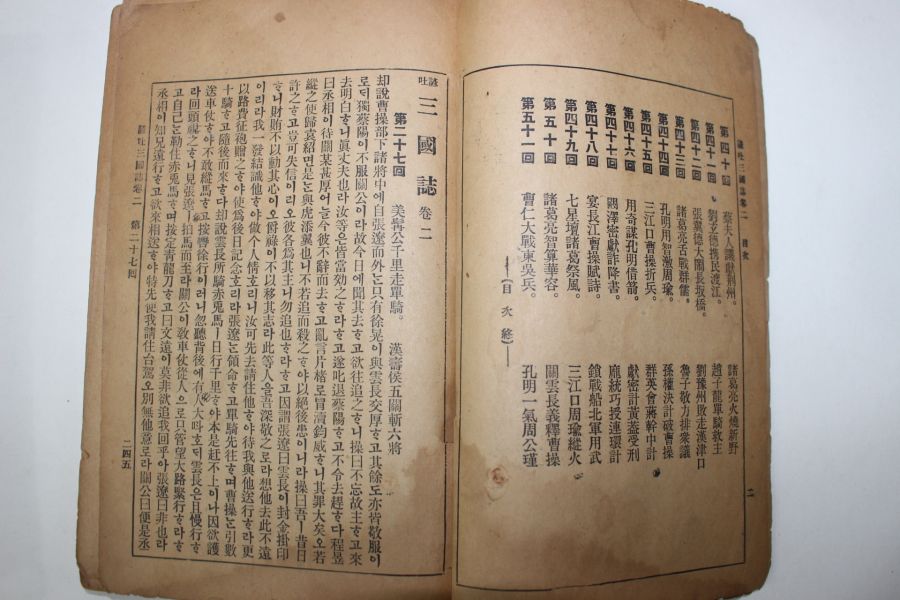 諺吐三國誌卷二 目次
第四十回 蔡夫人議獻荊州。 諸葛亮火燒新野
第四十一回 劉玄德携民渡江。 趙子龍單騎救主
第四十二回 張翼德大鬧長坂橋。 劉豫州敗走漢津口
第四十三回 諸葛亮舌戰群儒。 魯子敬力排衆議
第四十四回 孔明用智激周瑜。 孫權決計破曹操
第四十五回 三江口曹操折兵。 群英會蔣幹中計
第四十六回 用奇謀孔明借箭。 獻密計黃蓋受刑
第四十七回 闞澤密獻詐降書。 龐統巧授連環計
第四十八回 宴長江曹操賦詩。 鎖戰船北軍用武
第四十九回 七星壇諸葛祭風。 三江口周瑜縱火
第五十回 諸葛亮智算華容。 關雲長義釋曹操
第五十一回 曹仁大戰東吳兵。 孔明一氣周公瑾
（目次終）
二
諺吐 三國誌 卷二
第二十七回 美髯公千里走單騎。 漢壽侯五關斬六將
却說曹操部下諸將中에自張遼而外는只有徐晃이與雲長交厚고其餘도亦皆敬服이
로되獨蔡陽이不服關公이라故今日에聞其去고欲往追之니操曰不忘故主고來
去明白니眞丈夫也라汝等은皆當効之라고遂叱退蔡陽고不令去趕다程昱
曰丞相이待關某甚厚어늘今彼不辭而去고亂言片楮로冒瀆鈞威니其罪大矣오若
縱之使歸袁紹면是는與虎添翼也니不若追而殺之야以絕後患이니라操曰吾ㅣ昔日
許之고豈可失信이리오彼各爲其主니勿追也라고因謂張遼曰雲長이封金掛印
니財賄不以動其心이오爵祿이不以移其志라此等人을吾深敬之로라想他去此不遠
이리라我一發結識他야做個人情호리니汝可先去請住他야待我與他送行라更
以路費征袍贈之야使爲後日記念호리라張遼는領命고單騎先往며曹操는引數
十騎고隨後而來다却說雲長所騎赤兎馬ㅣ日行千里야本是赶不上이나因欲護
送車仗야不敢縱馬고按轡徐行이러니忽聽背後에有人大呌호되雲長은且慢行라
라回頭視之니見張遼ㅣ拍馬而至라關公이敎車仗從人으로只管望大路緊行라
고自己는勒住赤兎馬며按定靑龍刀고曰文遠이莫非欲追我回乎아張遼曰非也라
丞相이知兄遠行고欲來相送야特先使我請住台駕오別無他意로라關公曰便是丞
諺吐三國誌卷二 第二十七回
二四五